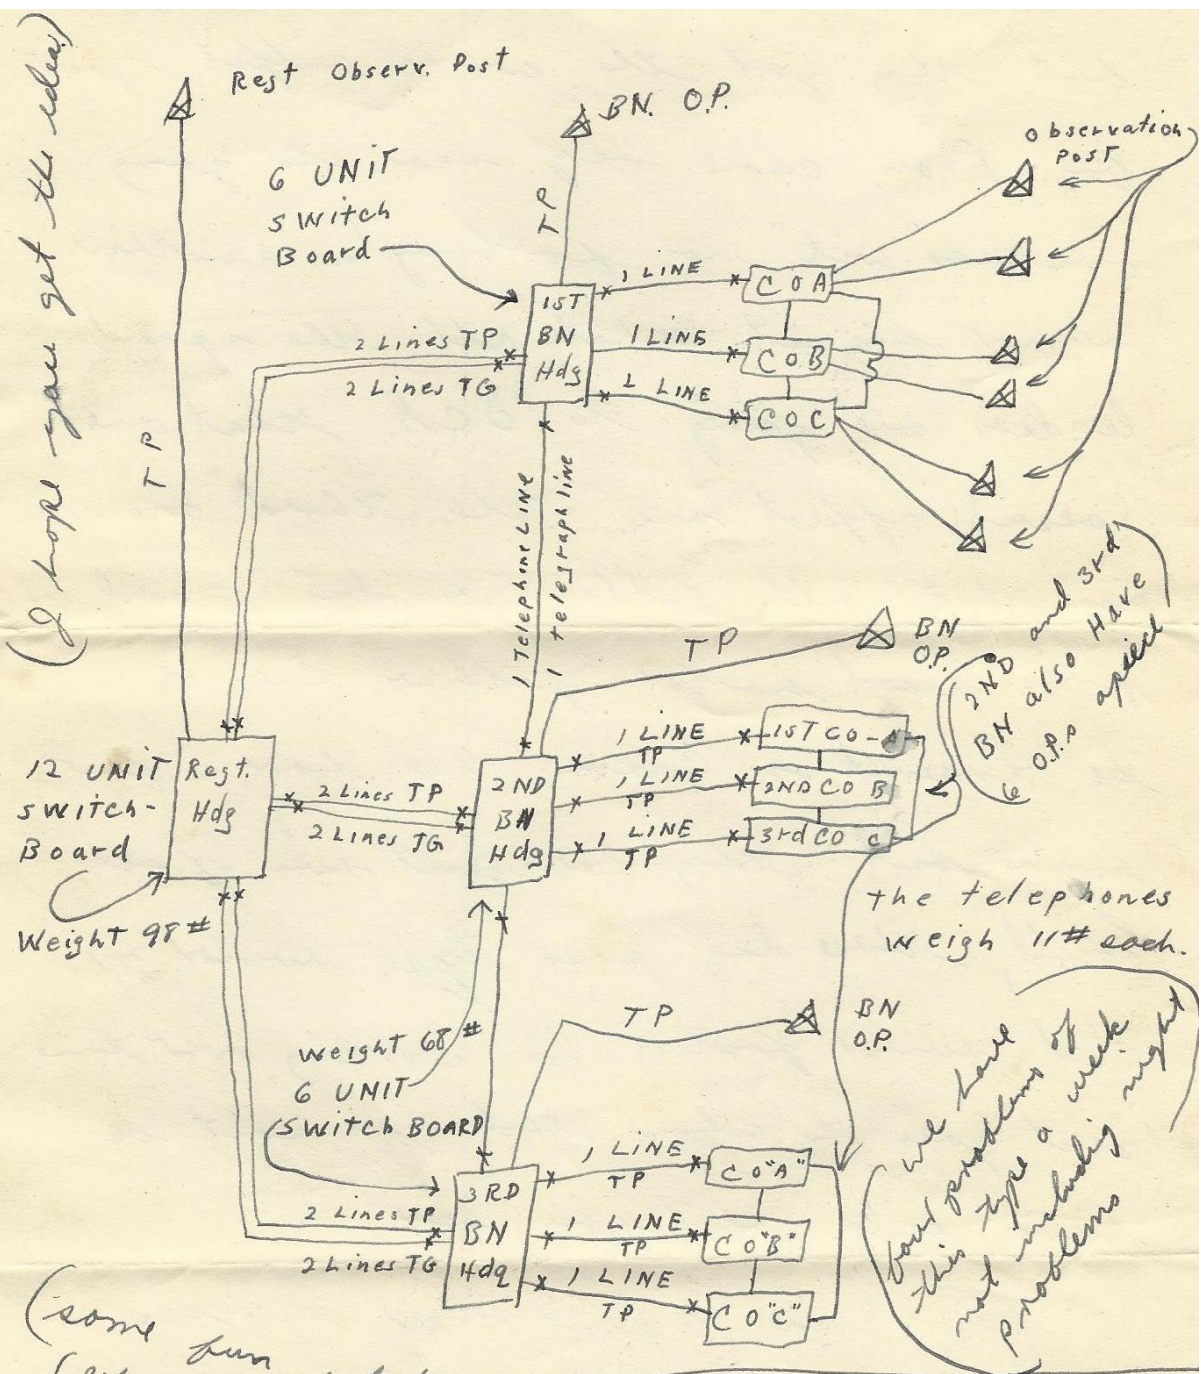 (I hope you get the idea)
Regt Observ. Post
BN. O.P.
Observation
Post
6 UNIT
SWitch
Board
TP
TP
1ST
BN
Hdg
1 LINE
1 LINE
1 LINE
CO A
CO B
CO C
2 Lines TP
2 Lines TG
1 Telephone Line
1 telegraph line
TP
BN
O.P.
2ND and 3rd
BN also Have
6 O.P.s apiece
12 UNIT
Switch-
Board
Weight 98#
Regt.
Hdg
2 Lines TP
2 Lines TG
2ND
BN
Hdg
1 LINE
TP
1 LINE
TP
1 LINE
TP
1ST CO-A
2ND CO B
3rd CO C
the telephones
weigh 11# each.
Weight 68#
6 UNIT
SWitch BOARD
TP
BN
O.P.
2 Lines TP
2 Lines TG
3RD
BN
Hdq
1 LINE
TP
1 LINE
TP
1 LINE
TP
CO "A"
CO "B"
CO "C"
(we have
four problems of
this type a week
not including night
problems
(some fun